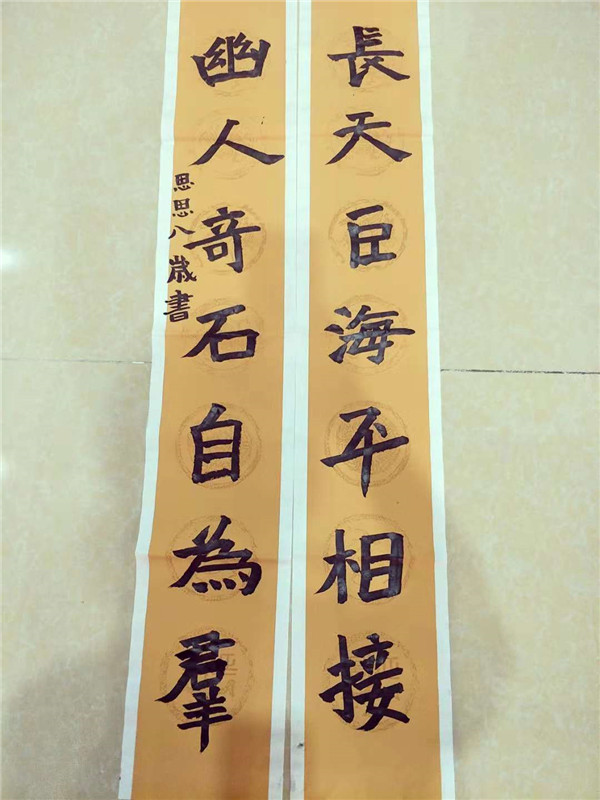 長天巨海平相接
幽人奇石自為羣
思思八歲書